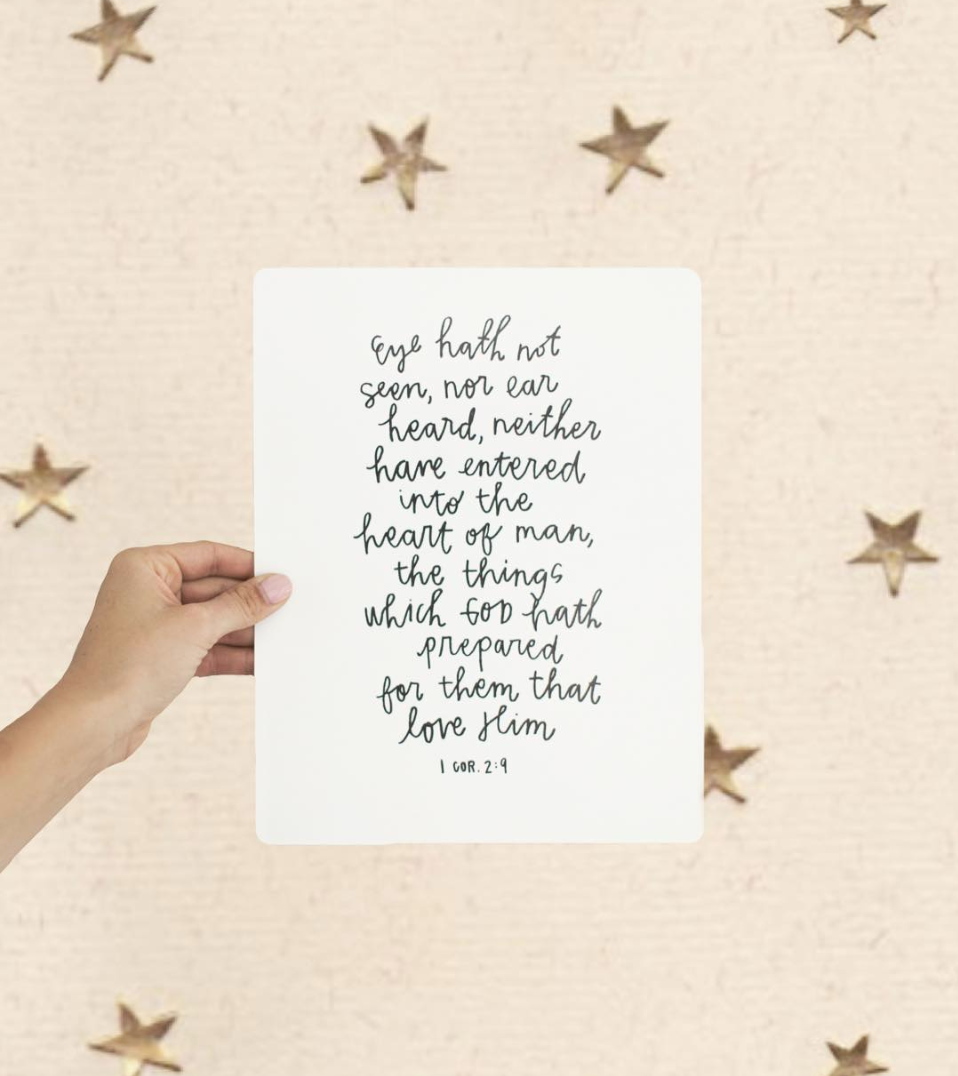 Eye hath not
seen, nor ear
heard, neither
have entered
into the
heart of man,
the things
which GOD hath
prepared
for them that
love Him
1 COR. 2:9